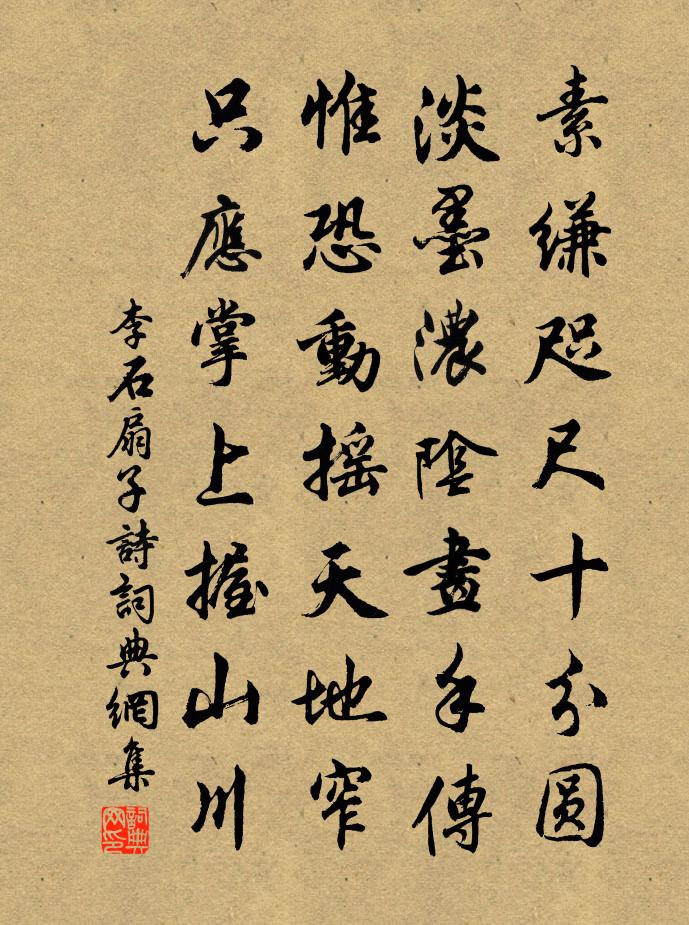 素縑咫尺十分圓
淡墨濃陰畫手傳
惟恐動搖天地窄
只應掌上握山川
李石扇子詩詞典網集
詞典網印